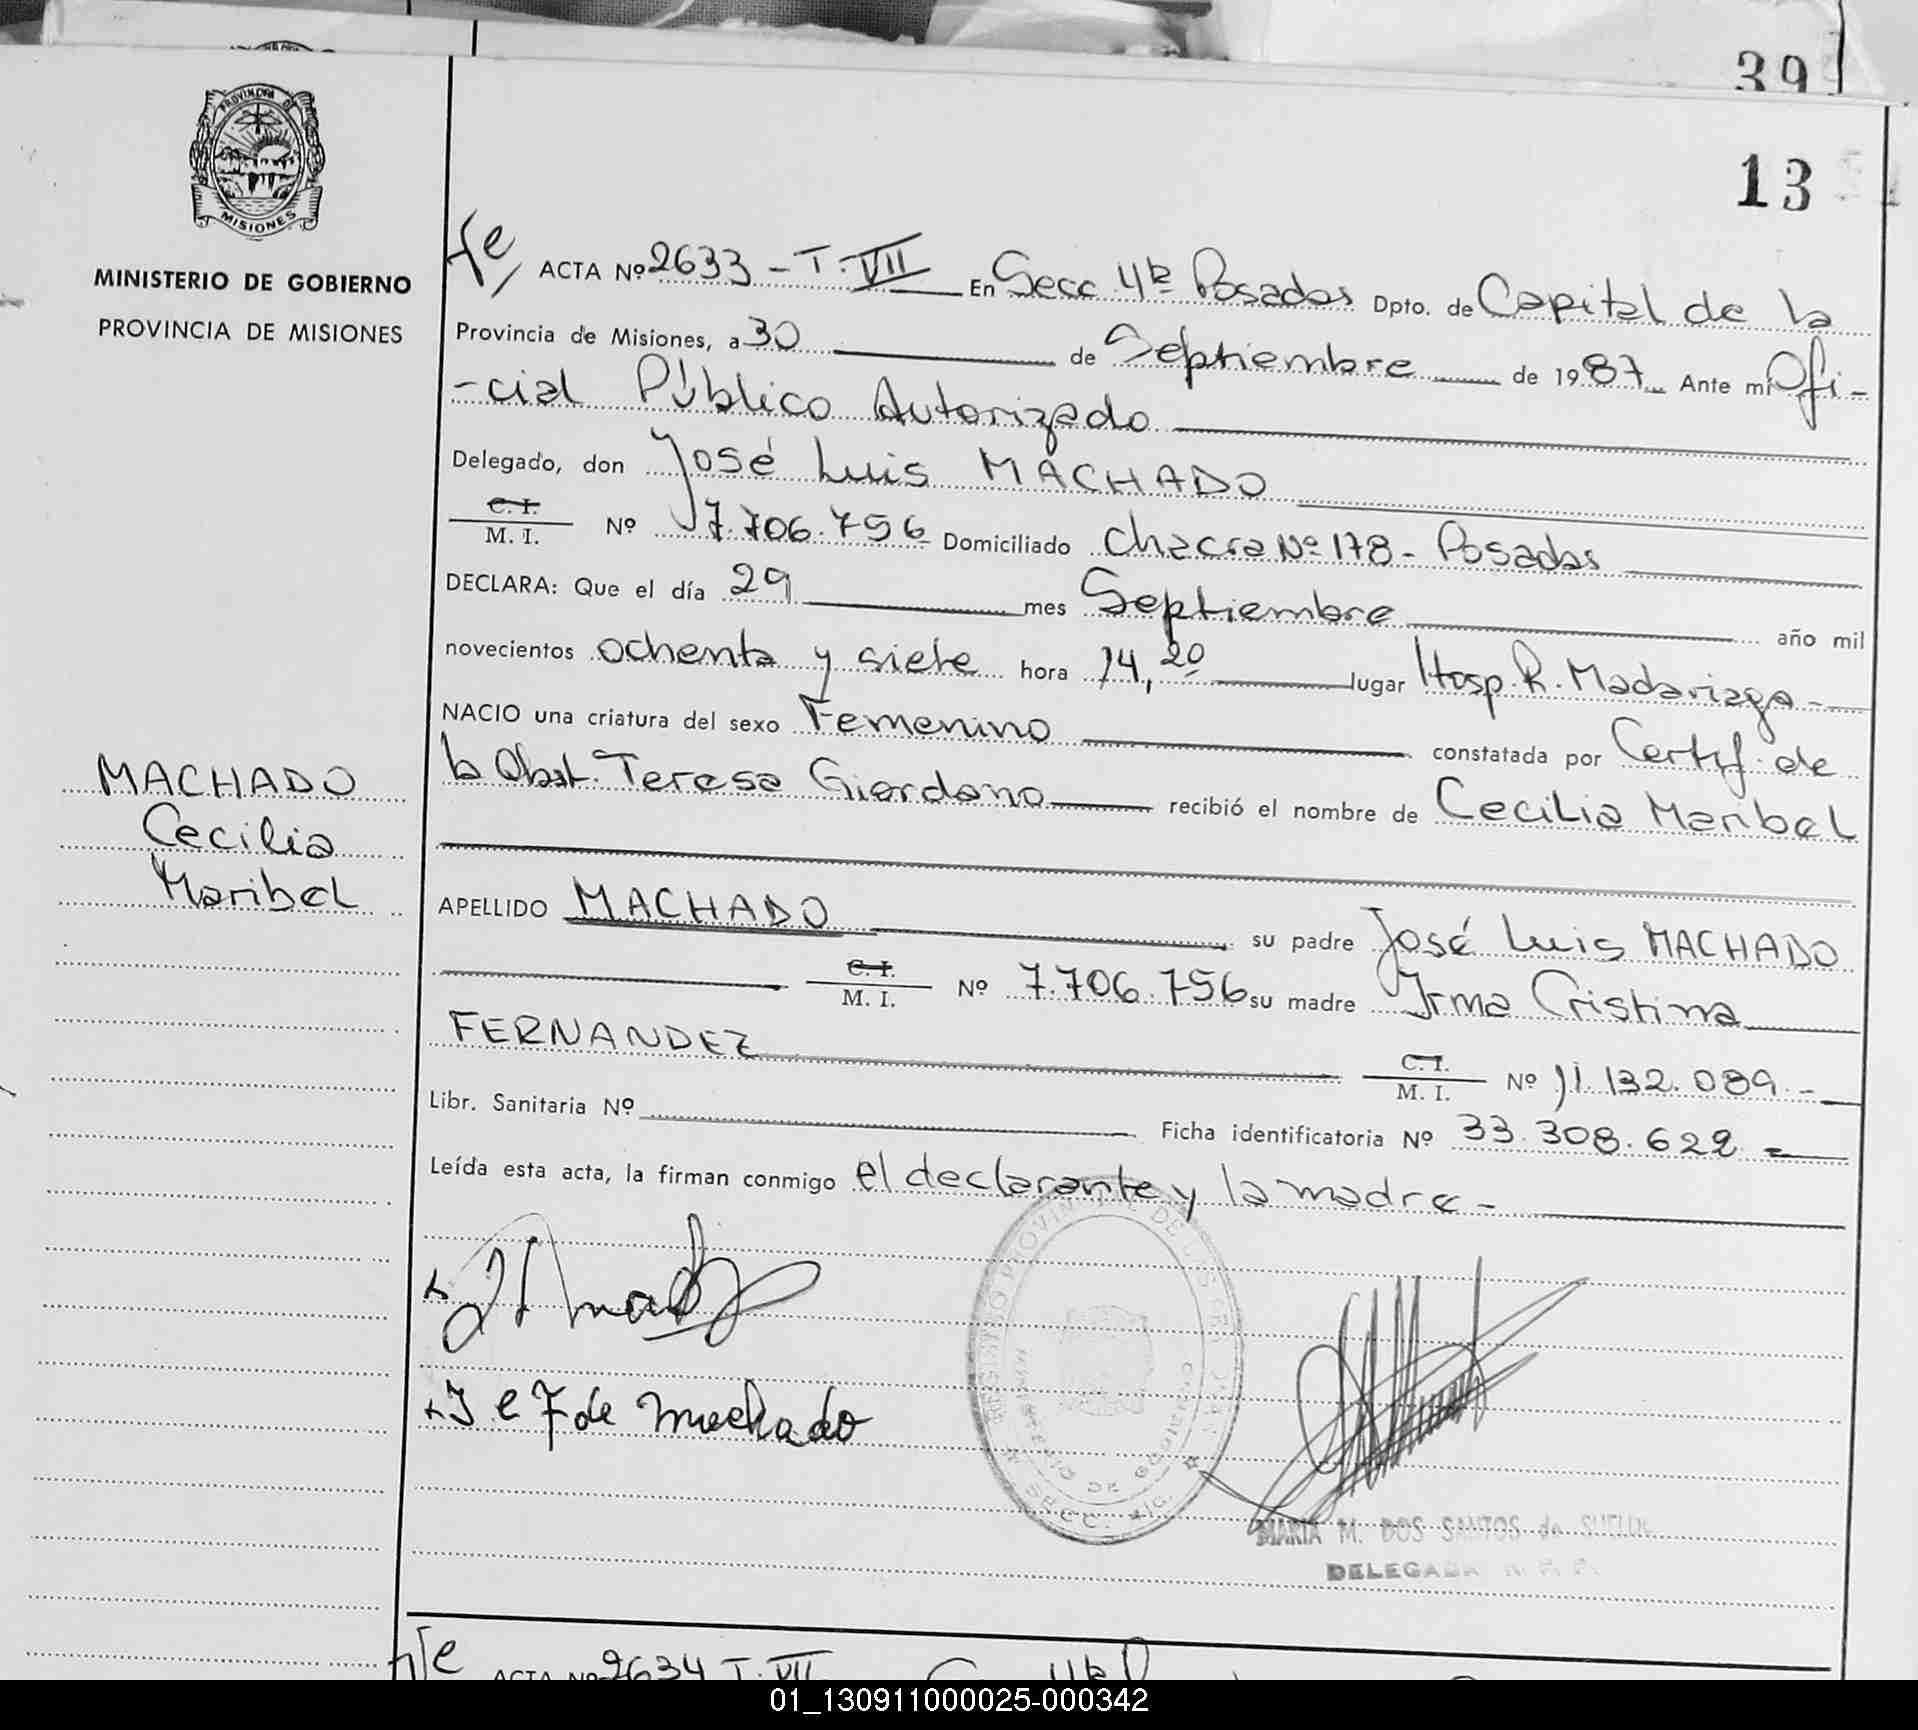 39
13
PROVINCIA DE
MISIONES
MINISTERIO DE GOBIERNO
PROVINCIA DE MISIONES
MACHADO
Cecilia
Maribel
ACTA Nº 2633 - T. VII En Secc 4ta Posadas Dpto. de Capital de la
Provincia de Misiones, a 30 de Septiembre de 1987 Ante mi Ofi-
-cial Público Autorizado
Delegado, don José Luis MACHADO
C. I.
M. I. Nº 7.706.756 Domiciliado Chacra Nº 178 - Posadas
DECLARA: Que el día 29 mes Septiembre año mil
novecientos ochenta y siete hora 14,20 lugar Hosp. R. Madariaga -
NACIO una criatura del sexo Femenino constatada por Certif. de
la Obst. Teresa Giordano recibió el nombre de Cecilia Maribel
APELLIDO MACHADO su padre José Luis MACHADO
C. I.
M. I. Nº 7.706.756 su madre Irma Cristina
FERNANDEZ C. I.
M. I. Nº 11.132.089.-
Libr. Sanitaria Nº Ficha identificatoria Nº 33.308.622
Leída esta acta, la firman conmigo el declarante y la madre -
de Machado
REGISTRO PROVINCIAL DE LAS PERSONAS
MINISTERIO DE GOBIERNO
SECC.
MARIA M. DOS SANTOS de
DELEGADA R. P. P.
ACTA Nº 2634 T. VII
01_130911000025-000342